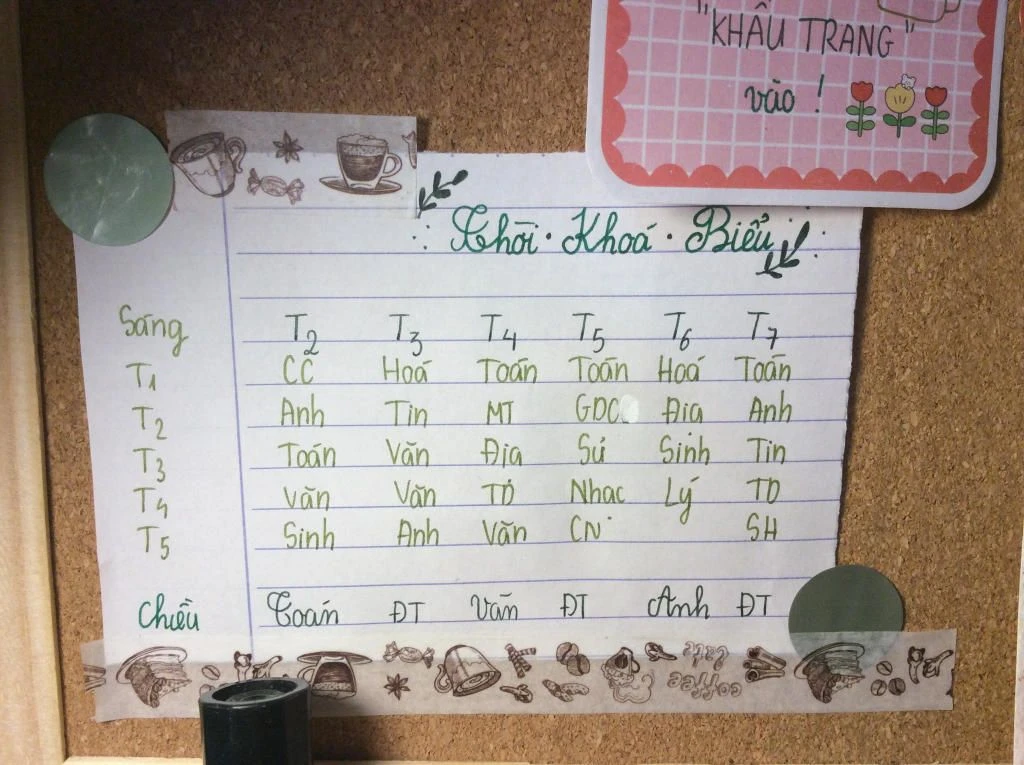 "KHẨU TRANG"
vào !
Thời · Khoá · Biểu
Sáng T2 T3 T4 T5 T6 T7
T1 CC Hoá Toán Toán Hoá Toán
T2 Anh Tin MT GDC Địa Anh
T3 Toán Văn Địa Sử Sinh Tin
T4 Văn Văn TD Nhạc Lý TD
T5 Sinh Anh Văn CN SH
Chiều Toán ĐT Văn ĐT Anh ĐT
coffee